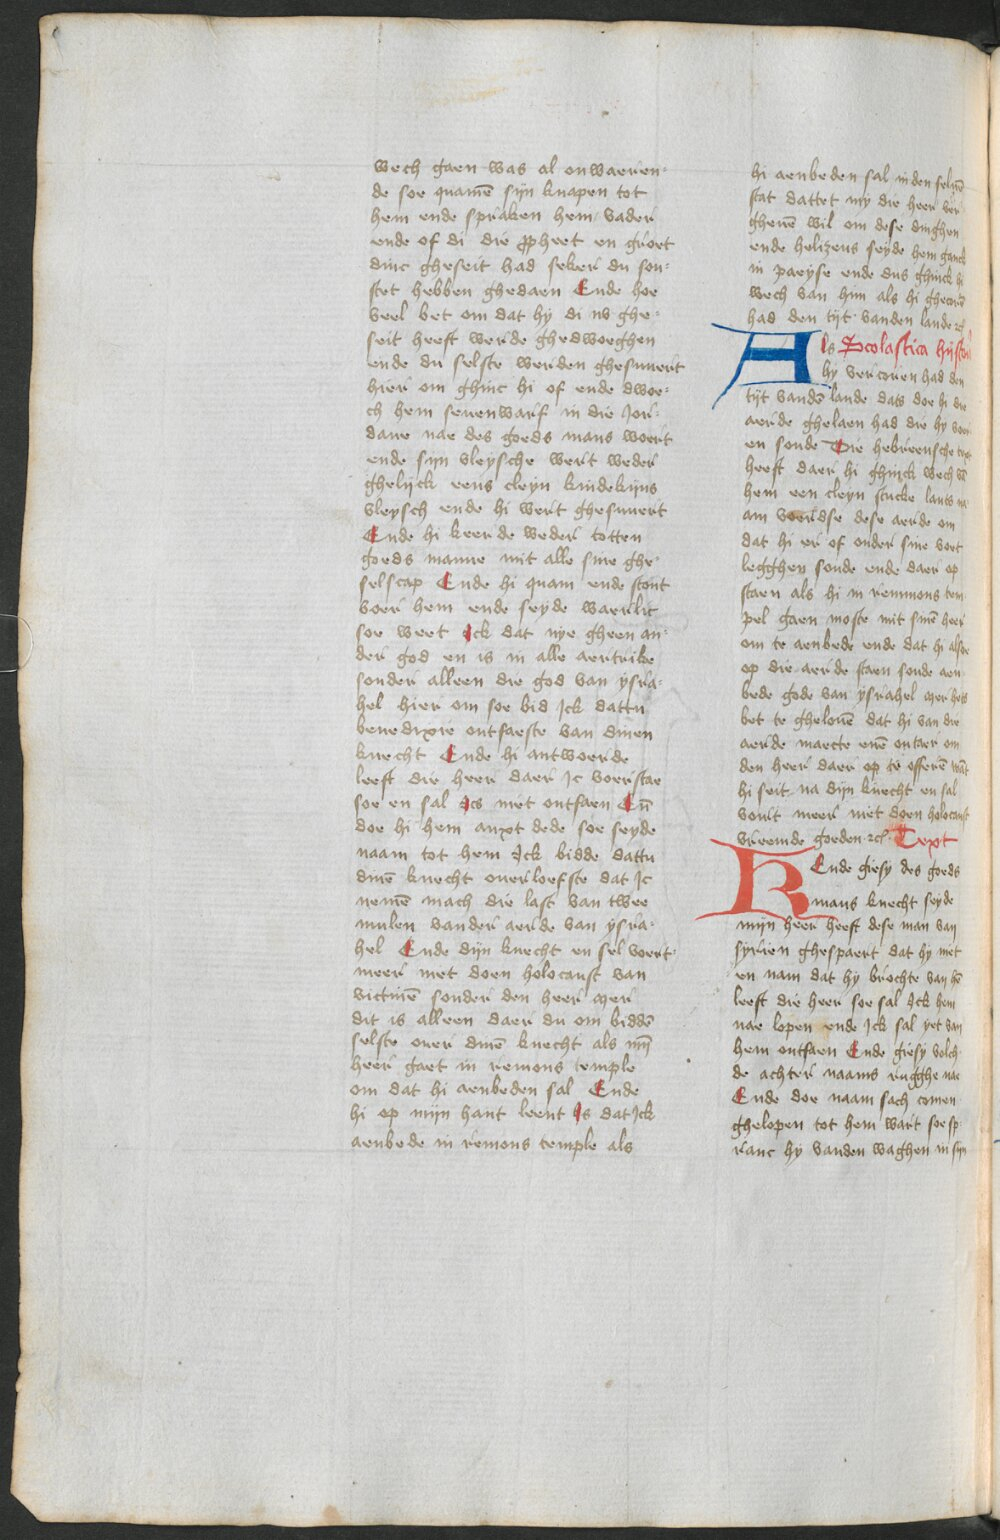 wech gaen was al onwaeren-
de soe quamē sijn knapen tot
hem ende spraken hem vader
ende of di die ꝓpheet en groet
dinc gheseit had seker du sou-
stet hebben ghedaen Ende hoe
veel bet om dat hy di nv ghe-
seit heeft werde ghedwoeghen
ende du selste werden ghesuuert
hier om ghinc hi of ende dwoe-
ch hem seuenwarf in die Jor-
dane nae des goeds mans woert
ende sijn vleysche wert weder
ghelijck eens cleyn kindekijns
vleysch ende hi wert ghesuuert
Ende hi keerde weder totten
goeds manne mit alle sine ghe-
selscap Ende hi quam ende stont
voer hem ende seyde waerlic
soe weet Ick dat nye gheen an-
der god en is in alle aertrike
sonder alleen die god van ysra-
hel hier om soe bid Ick dattu
benedixie ontfaeste van dinen
knecht Ende hi antwoerde
leeft die heer daer Ic voer stae
soe en sal Ics niet ontfaen Eñ
doe hi hem anxt dede soe seyde
naam tot hem Ick bidde dattu
dinē knecht ouerloefste dat Ic
nemē mach die last van twee
mulen vander aerde van ysra-
hel Ende dijn knecht en sel voert-
meer niet doen holocaust van
victimē sonder den heer mer
dit is alleen daer du om biddē
selste ouer dinē knecht als mỹ
heer gaet in remons temple
om dat hi aenbeden sal Ende
hi op mijn hant leent Is dat Ick
aenbede in remons temple als
hi aenbeden sal in den seluē
stat dattet my die heer ver
gheuē wil om dese dinghen
ende helizeus seyde hem ganck
in paeyse ende dus ghinck hi
wech van him als hi ghecoren
had den tijt vanden lande ⁊cͭ
Als Scolastica hijstoria
hy vercoren had den
tijt vandē lande dats doe hi die
aerde ghelaen had die hy voer
en soude Die hebreensche text
heeft daer hi ghinck wech vā
hem een cleyn stucke lants na
am voerdse dese aerde om
dat hi er of onder sine voet
legghen soude ende daer op
staen als hi in remmons tem-
pel gaen moste mit sinē heer
om te aenbede ende dat hi alsoe
op die aerde staen soude aen
bede gode van ysrahel mer hets
bet te ghelouē dat hi van die
aerde maecte enē outaer om
den heer daer op te offerē want
hi seit na dijn knecht en sal
voirt meer niet doen holocaust
vreemde goeden ⁊cͭ Text
Ende giesy des goeds
mans knecht seyde
mijn heer heeft dese man van
syrien ghespaert dat hy niet
en nam dat hy brochte van hē
leeft die heer soe sal Ick hem
nae lopen ende Ick sal yet van
hem ontfaen Ende giesy volch
de achter naams rugghe nae
Ende doe naam sach comen
ghelopen tot hem wart soe sp
ranc hy vanden waghen in sijn